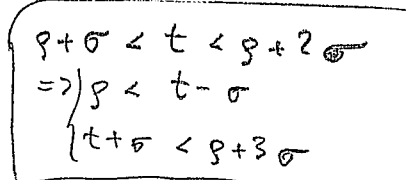 ρ + σ < t < ρ + 2σ
=> ρ < t - σ
t + σ < ρ + 3σ